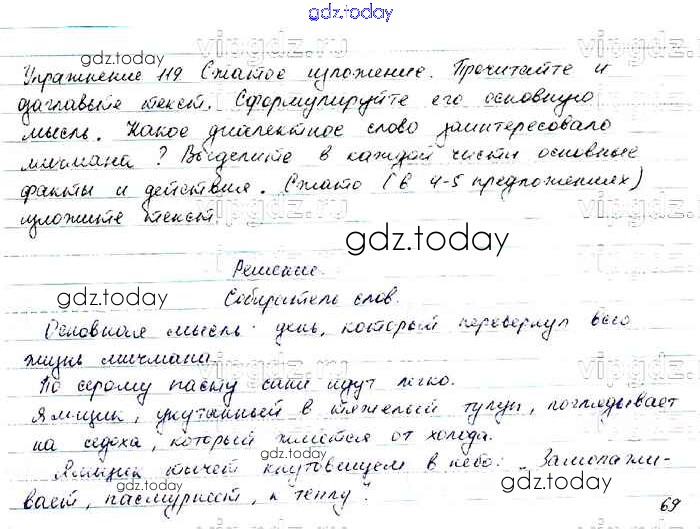 gdz.today
vipgdz.ru
gdz.today
gdz.today
Упражнение 119 Сжатое изложение. Прочитайте и
озаглавьте текст. Сформулируйте его основную
мысль. Какое диалектное слово заинтересовало
мичмана? Выделите в каждой части основные
факты и действия. Сжато (в 4-5 предложениях)
изложите текст.
gdz.today
Решение.
gdz.today
Собиратель слов.
Основная мысль: день, который перевернул всю
жизнь мичмана.
По серому насту сани идут легко.
Ямщик, укутанный в тяжелый тулуп, поглядывает
на седока, который жмется от холода.
Ямщик тычет кнутовищем в небо: "Замолажи-
вает, пасмурнеет, к теплу".
gdz.today
69